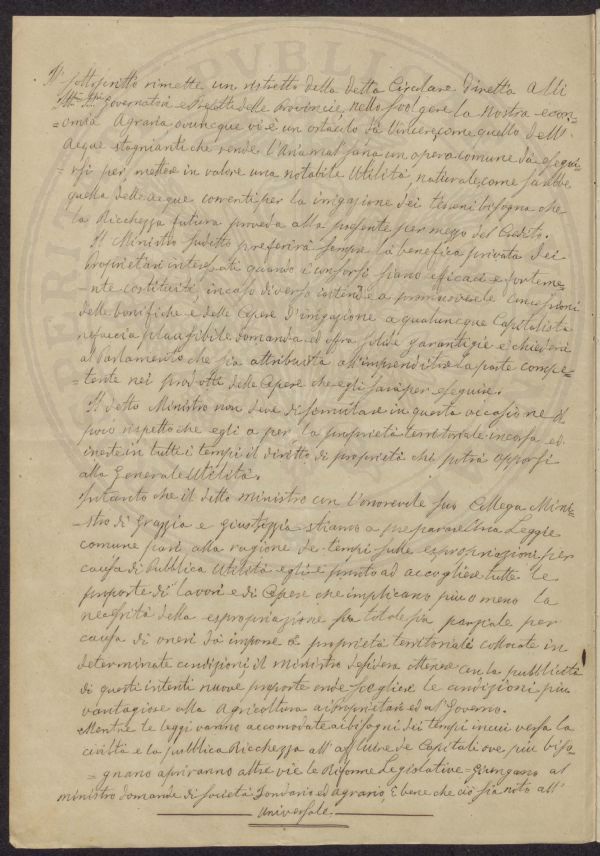 Il sottoscritto rimette un ristretto della detta Circolare diretta alli
Governatori e Prefetti delle Provincie, nello svolgere la nostra econ=
=omia Agraria ovunque vi è un ostacolo da vincere, come quello dell'
Acque stagnanti che rende l'Aria mal sana un opera comune da esegui=
rsi per mettere in valore una notabile Utilità, naturale, come sarebbe
quella delle acque correnti per la irigazione dei terreni bisogna che
la Ricchezza futura proveda alla presente per mezzo del Credito.
Il Ministro sudetto preferirà sempre la benefica privata dei
Proprietari interessati quando i consorsi siano eficaci e forteme=
=nte costituiti, in caso diverso intende a promuovere le Concessioni
delle bonifiche e delle Opere d'irigazione a qualunque Capitalista
ne faccia plausibile domanda ed offra solide garantigie e chiederà
al Parlamento che sia attribuita all'imprenditore la parte compe=
=tente nei prodotti delle Opere che egli sarà per eseguire.
Il detto Ministro non deve dissimulare in questa occasione il
poco rispetto che egli a per la proprietà territoriale incolta ed
inerte in tutti i tempi il diritto di proprietà chi potrà opporsi
alla Generale Utilità.
Intanto che il ditto ministro con l'onorevole suo Collega Mini=
=stro di Grazzia e giustizzia stiano a preparare Una Leggie
comune pari alla ragione de tempi sulle espropriazioni per
causa di Pubblica Utilità egli è pronto ad accogliere tutte le
proposte di lavori e di Opere che implicano più o meno la
necessità della espropriazione sia totale sia parziale per
causa di oneri da impone a proprietà territoriali collocate in
determinate condizioni, il ministro desidera ottenere con la pubblicità
di questi intenti nuove proposte onde scegliere le condizioni più
vantagiose alla Agricoltura ai proprietari ed al Governo.
Mentre le leggi vanno accomodate ai bisogni dei tempi in cui versa la
civiltà e la pubblica Ricchezza all'affluire de Capitali ove più biso
=gnano apriranno altre vie le Riforme Legislative = Giungano al
ministro domande di Società Fondiario ed Agrario, è bene che ciò sia noto all'
Universale.